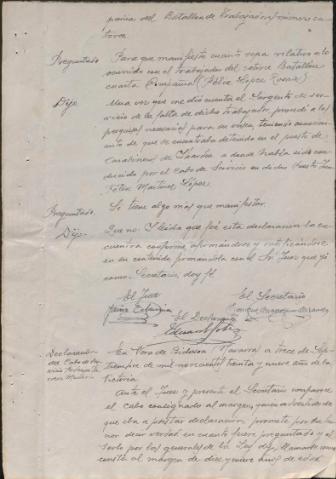 pañia del Batallon de Trabajadores numero ca
torce.
Preguntado Para que manifieste cuanto sepa relativo a lo
ocurrido con el trabajador del septimo Batallon
cuarta Compañia
Dijo: Una vez que me dió cuenta el Sargento de ser
vicio de la falta de dicho trabajador, procedi a las
pesquisas necesarias para su busca, teniendo conocimi
ento de que se encontraba detenido en el puesto de
Carabineros de a donde habia sido con
ducido por el cabo de Servicio en dicho Puesto
Felix Martinez López.
Preguntado. Si tiene algo mas que manifestar.
Dijo: Que no. Y leida que fué esta declaracion la en
cuentra conforme afirmandose y ratificandose
en su contenido firmandola con el Sr. Juez que yó
como Secretario, doy fé.
El Juez El Secretario
El Declarante
Declaración
del Cabo de
En Vera de Bidasoa (Navarra) a trece de Sep
tiembre de mil novecientos treinta y nueve año de la
Victoria.
Ante el Juez y presente el Secretario comparece
el cabo consignado al margen, y
que iba a prestar declaración, promete por su ho
nor decir verdad en cuanto fuere preguntado y al
serlo por las generales de la Ley, dijo llamarse como
consta al margen de diez y nueve años de edad